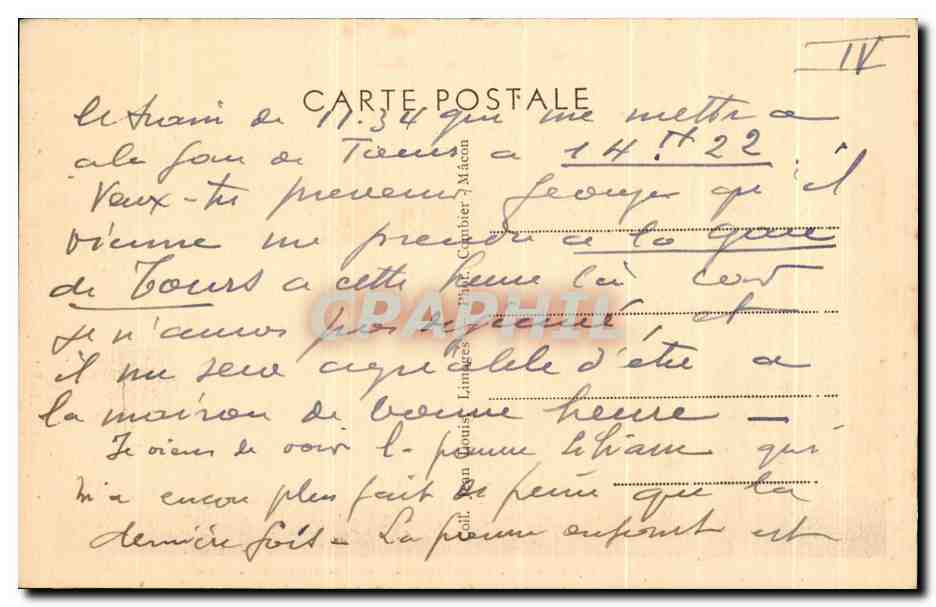 IV
CARTE POSTALE
le train de 11.34 qui me mettra
a la gare de Tours a 14.H 22
Veux-tu prevenir Georges qu'il
vienne me prendre a la gare
de Tours a cette heure là car
je n'aurai pas dejeuné, et
il me sera agréable d'être a
la maison de bonne heure —
Je viens de voir la pauvre Liliane qui
m'a encore plus fait de peine que la
dernière fois. La pauvre enfant est
Jean Louis, Limoges - Phot. Combier - Mâcon
CPAPHIL